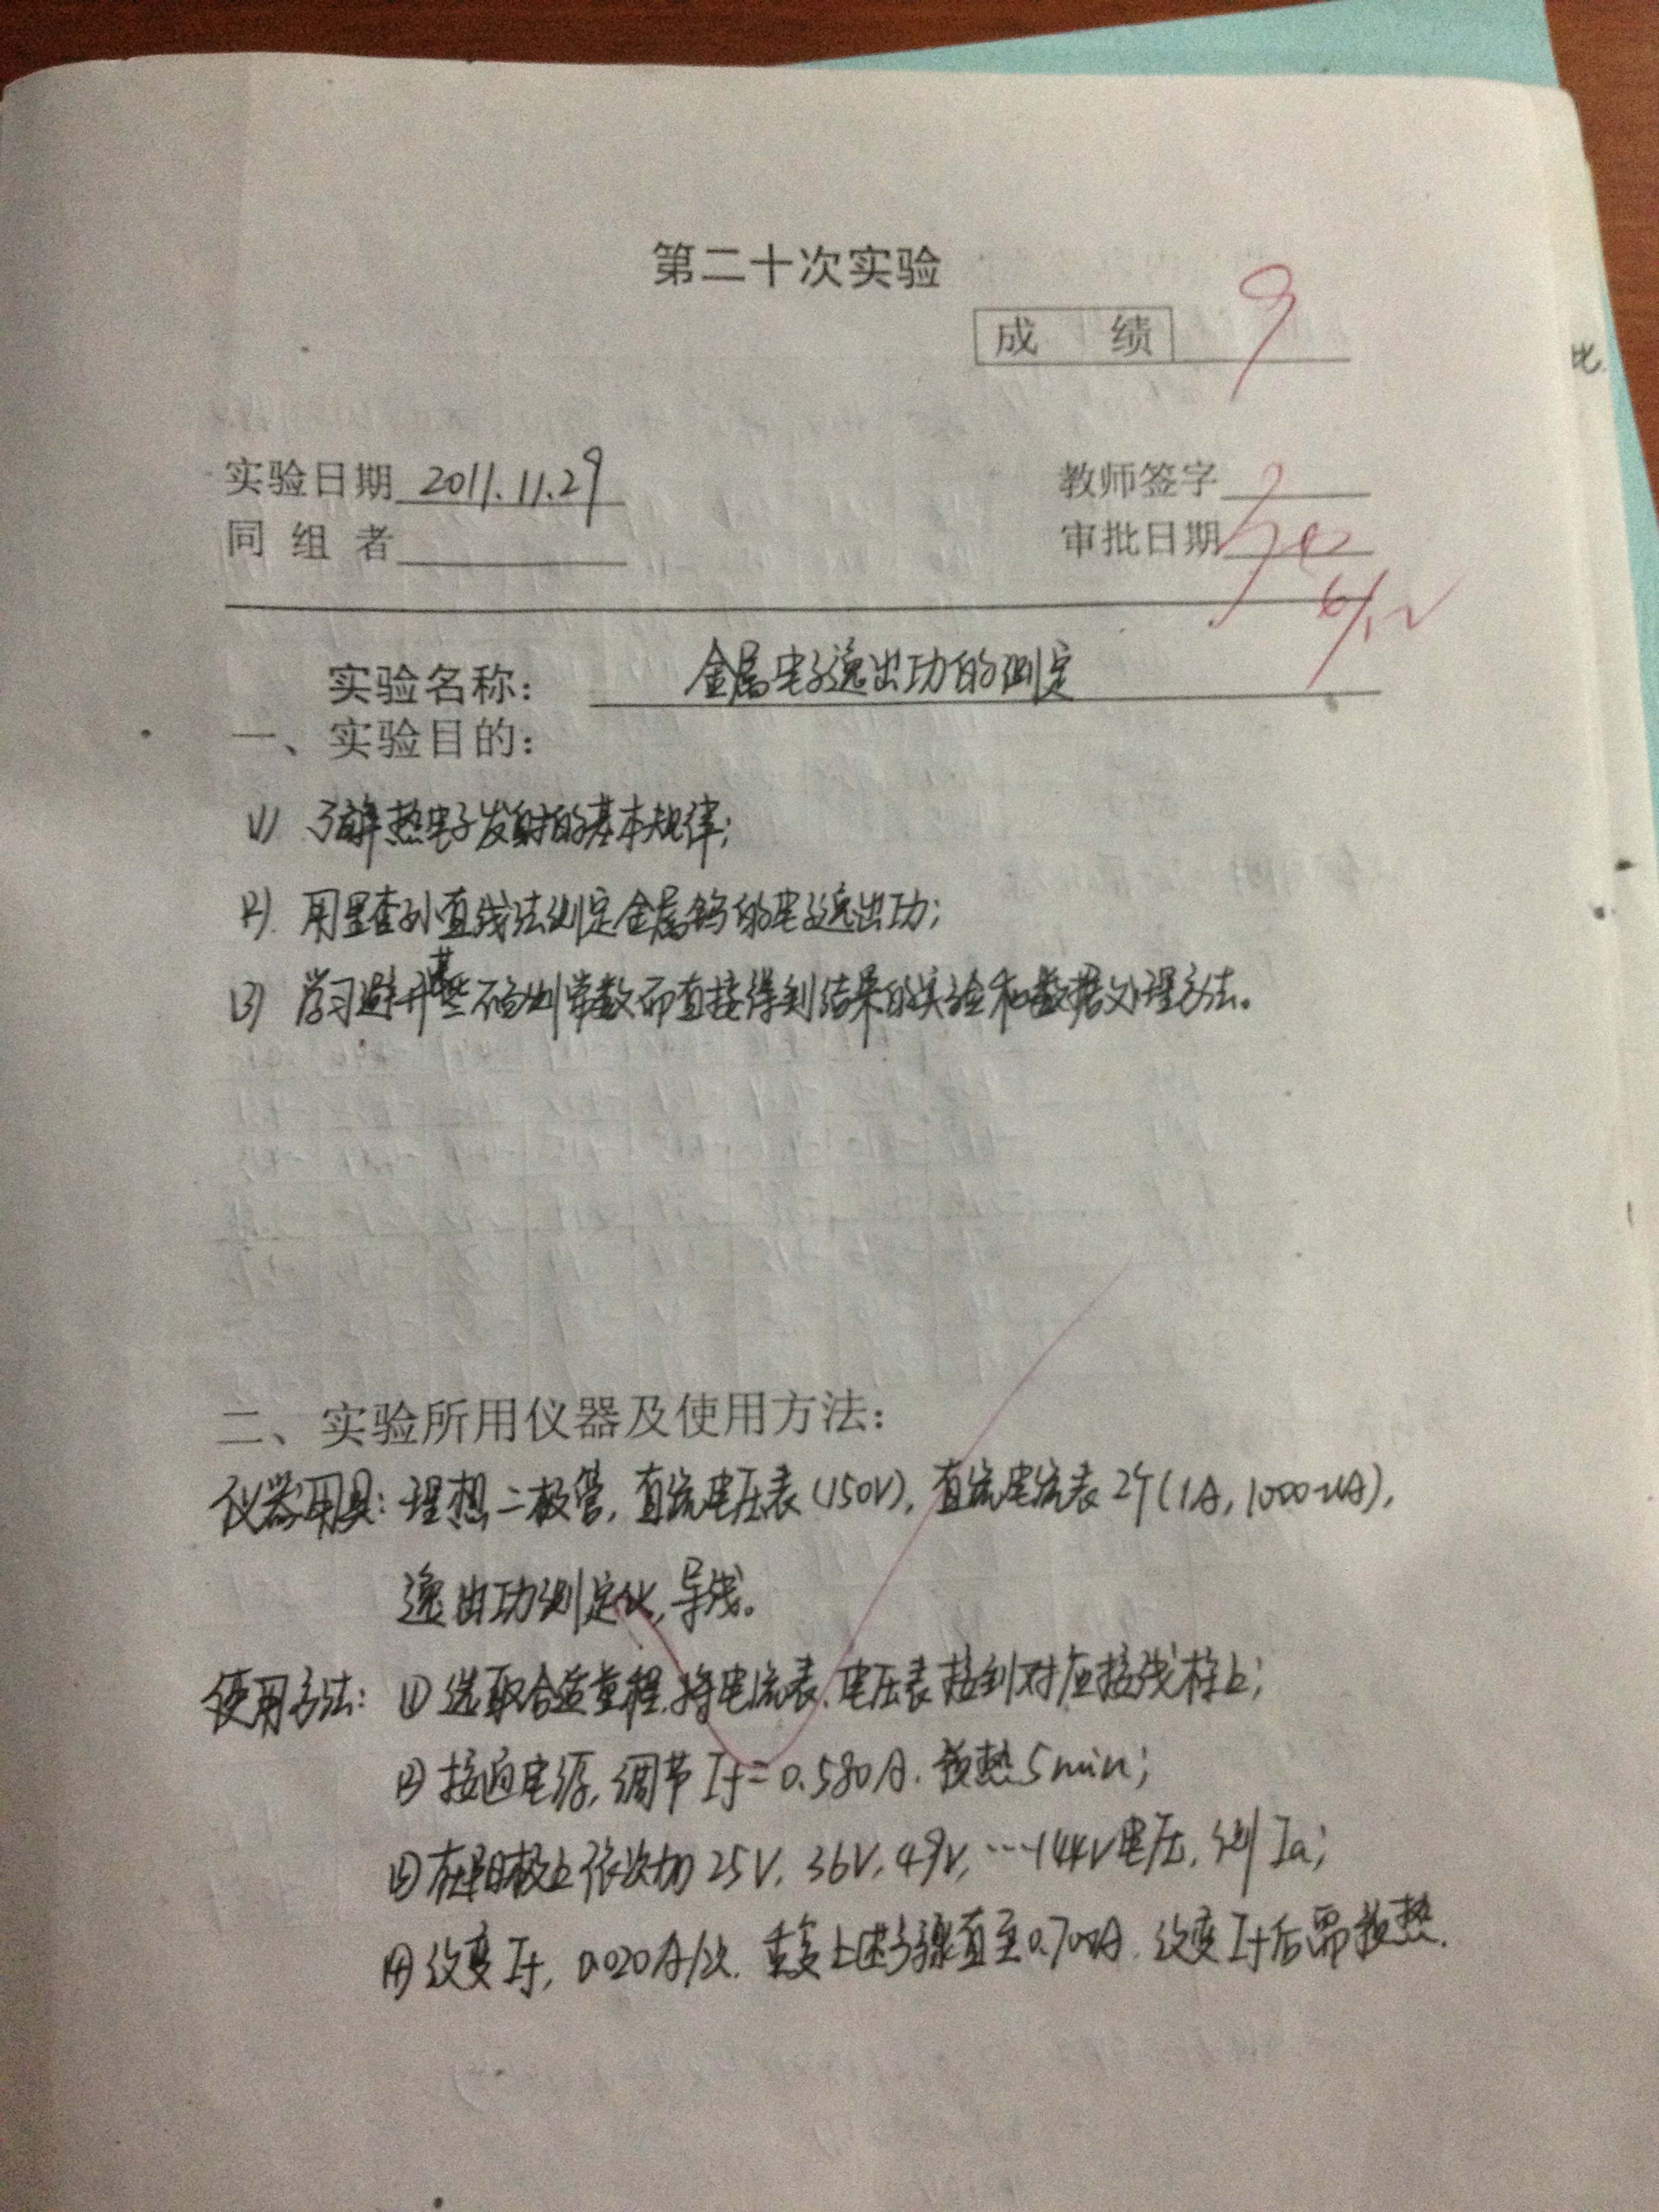 第二十次实验
成 绩 9
实验日期 2011.11.29 教师签字
同 组 者 审批日期
6/12
实验名称: 金属电子逸出功的测定
一、实验目的:
(1) 了解热电子发射的基本规律;
(2) 用里查孙直线法测定金属钨的电子逸出功;
(3) 学习避开某些不易测常数而直接得到结果的实验和数据处理方法。
二、实验所用仪器及使用方法:
仪器用具: 理想二极管, 直流电压表(150V), 直流电流表2个(1A, 1000μA),
逸出功测定仪, 导线。
使用方法: ① 选取合适量程, 将电流表、电压表接到对应接线柱上;
② 接通电源, 调节If=0.580A. 预热5min;
③ 在阳极上依次加25V, 36V, 49V, …144V电压, 测Ia;
④ 改变If, 0.020A/次. 重复上述步骤直至0.700A. 改变If后需预热.
比.